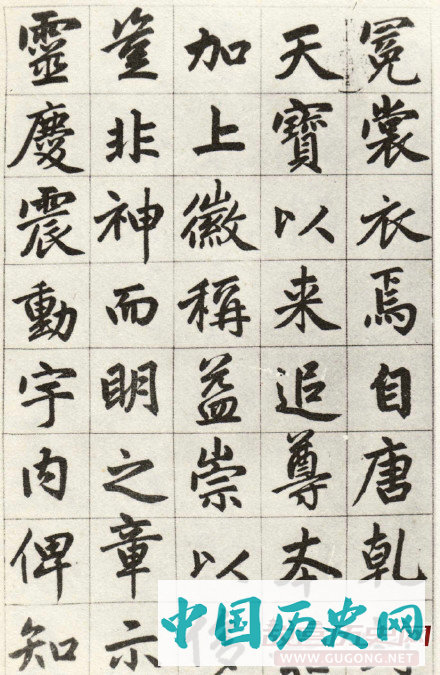 冕裳衣焉自唐乾
天寶以来追尊本
加上徽稱益崇以
豈非神而明之章示
靈慶震動宇内俾知
中国历史网
WWW.GUGONG.NET